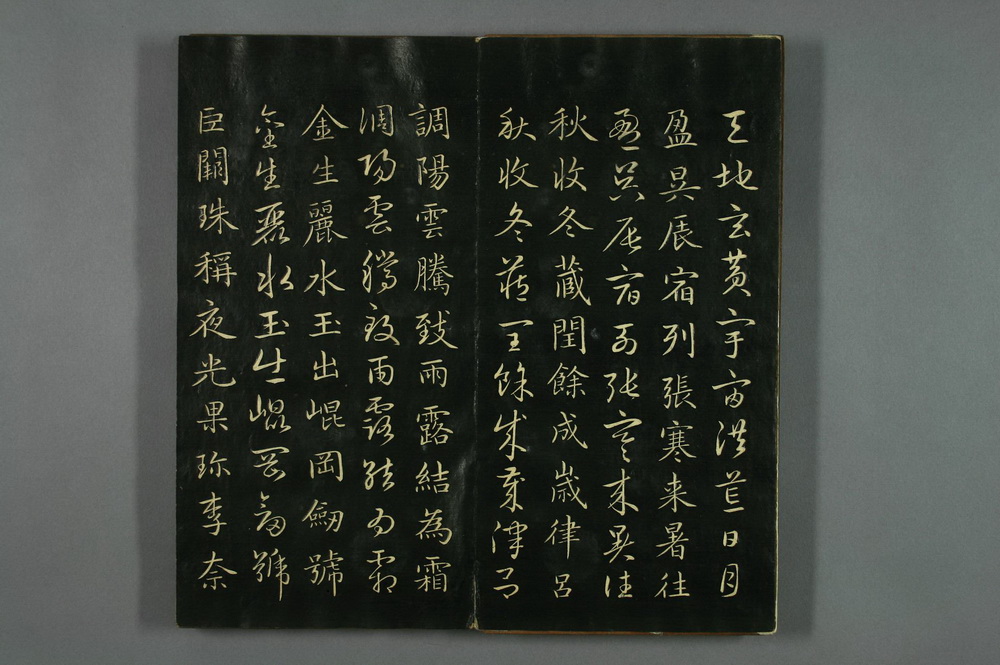 天地玄黄宇宙洪荒日月
盈昃辰宿列張寒来暑往
盈昃辰宿列張寒来暑往
秋收冬蔵閏餘成歳律呂
秋收冬蔵閏餘成歳律呂
調陽雲騰致雨露結為霜
調陽雲騰致雨露結為霜
金生麗水玉出崐岡劒號
金生麗水玉出崐岡劒號
巨闕珠稱夜光果珎李柰